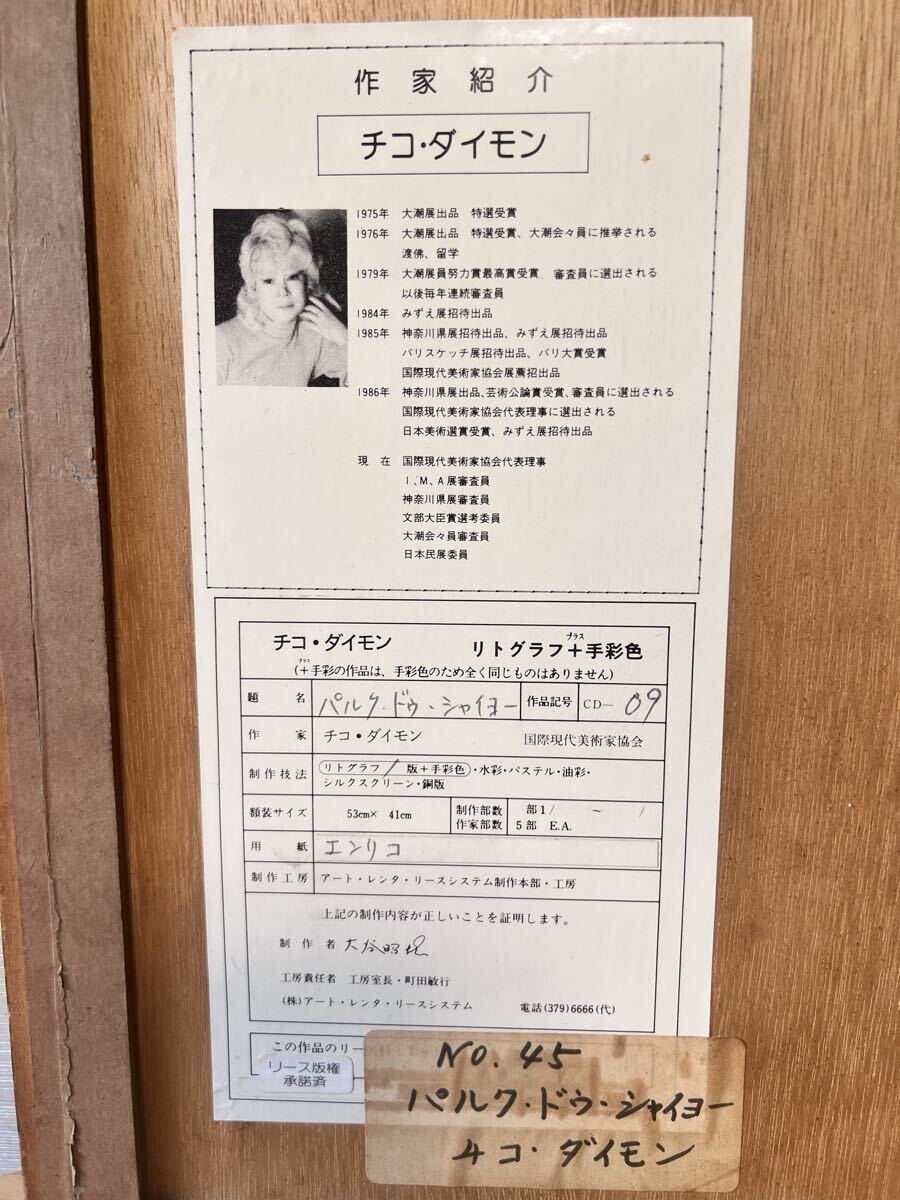 作家紹介
チコ・ダイモン
1975年 大潮展出品 特選受賞
1976年 大潮展出品 特選受賞、大潮会々員に推挙される
渡佛、留学
1979年 大潮展員努力賞最高賞受賞 審査員に選出される
以後毎年連続審査員
1984年 みずえ展招待出品
1985年 神奈川県展招待出品、みずえ展招待出品
パリスケッチ展招待出品、パリ大賞受賞
国際現代美術家協会展薦招出品
1986年 神奈川県展出品、芸術公論賞受賞、審査員に選出される
国際現代美術家協会代表理事に選出される
日本美術選賞受賞、みずえ展招待出品
現在 国際現代美術家協会代表理事
I、M、A展審査員
神奈川県展審査員
文部大臣賞選考委員
大潮会々員審査員
日本民展委員
チコ・ダイモン リトグラフ+手彩色
プラス
(+手彩の作品は、手彩色のため全く同じものはありません)
プラス
題名 パルク・ドゥ・シャイヨー 作品記号 CD-09
作家 チコ・ダイモン 国際現代美術家協会
制作技法 リトグラフ/版+手彩色・水彩・パステル・油彩・
シルクスクリーン・銅版
額装サイズ 53cm× 41cm 制作部数 部1/ ~ /
作家部数 5部 E.A.
用紙 エンリコ
制作工房 アート・レンタ・リースシステム制作本部・工房
上記の制作内容が正しいことを証明します。
制作者
工房責任者 工房室長・町田敏行
(株)アート・レンタ・リースシステム 電話(379)6666(代)
この作品のリー
リース版権
承諾済
NO.45
パルク・ドゥ・シャイヨー
チコ・ダイモン